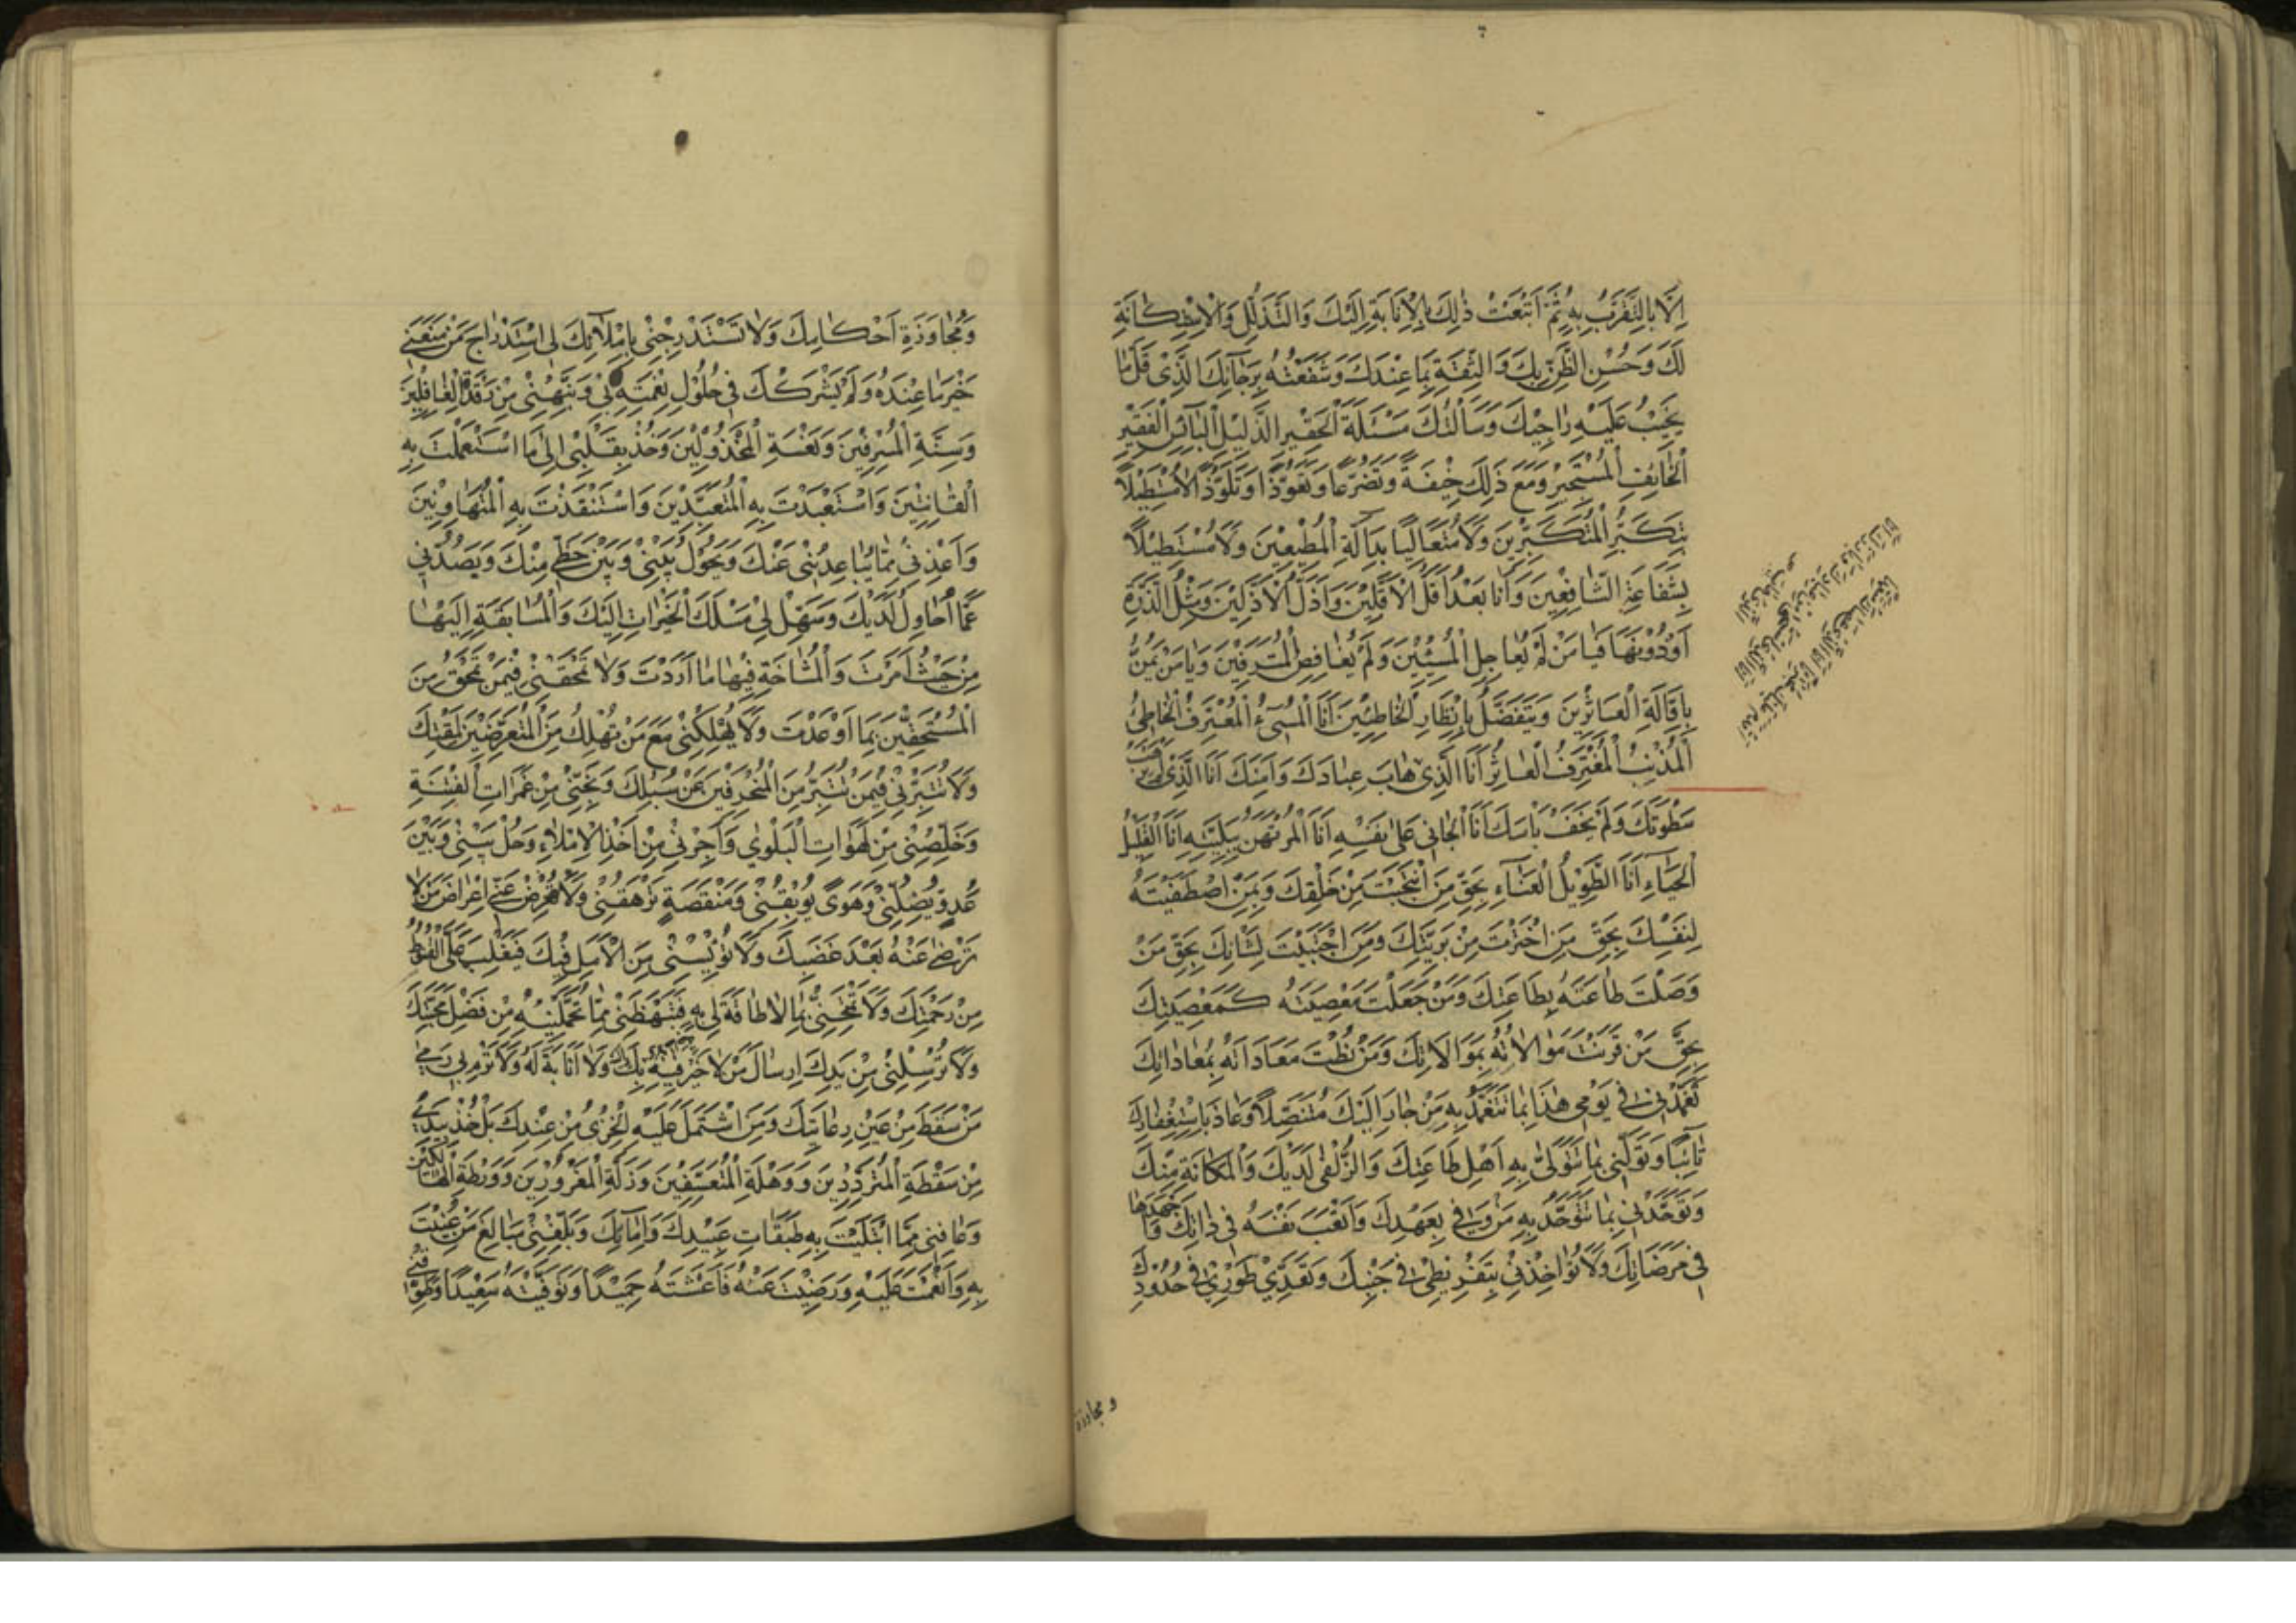 اِلَّا بِالتَّقَرُّبِ بِهِ ثُمَّ اَتْبَعْتُ ذٰلِكَ بِالْاِنَابَةِ اِلَيْكَ وَالتَّذَلُّلِ وَالْاِسْتِكَانَةِ
لَكَ وَحُسْنِ الظَّنِّ بِكَ وَالثِّقَةِ بِمَا عِنْدَكَ وَشَفَعْتُهُ بِرَجَآئِكَ الَّذِى قَلَّ مَا
يَخِيْبُ عَلَيْهِ رَاجِيْكَ وَسَاَلْتُكَ مَسْئَلَةَ الْحَقِيْرِ الذَّلِيْلِ الْبَآئِسِ الْفَقِيْرِ
الْخَائِفِ الْمُسْتَجِيْرِ وَمَعَ ذٰلِكَ خِيْفَةً وَتَضَرُّعًا وَتَعَوُّذًا وَتَلَوُّذًا لَا مُسْتَطِيْلًا
بِتَكَبُّرِ الْمُتَكَبِّرِيْنَ وَلَا مُتَعَالِيًا بِدَآلَّةِ الْمُطِيْعِيْنَ وَلَا مُسْتَطِيْلًا
بِشَفَاعَةِ الشَّافِعِيْنَ وَاَنَا بَعْدُ اَقَلُّ الْاَقَلِّيْنَ وَاَذَلُّ الْاَذَلِّيْنَ وَمِثْلُ الذَّرَّةِ
اَوْ دُوْنَهَا فَيَا مَنْ لَمْ يُعَاجِلِ الْمُسِيْئِيْنَ وَلَمْ يُغَافِصِ الْمُتْرَفِيْنَ وَيَا مَنْ يَمُنُّ
بِاِقَالَةِ الْعَاثِرِيْنَ وَيَتَفَضَّلُ بِاِنْظَارِ الْخَاطِئِيْنَ اَنَا الْمُسِىْءُ الْمُعْتَرِفُ الْخَاطِئُ
اَلْمُذْنِبُ الْمُقْتَرِفُ الْعَاثِرُ اَنَا الَّذِىْ هَابَ عِبَادَكَ وَاَمِنَكَ اَنَا الَّذِىْ لَمْ يَرْهَبْ
سَطْوَتَكَ وَلَمْ يَخَفْ بَاْسَكَ اَنَا الْجَانِى عَلٰى نَفْسِهِ اَنَا الْمُرْتَهَنُ بِبَلِيَّتِهِ اَنَا الْقَلِيْلُ
الْحَيَآءِ اَنَا الطَّوِيْلُ الْعَنَآءِ بِحَقِّ مَنِ انْتَجَبْتَ مِنْ خَلْقِكَ وَبِمَنِ اصْطَفَيْتَهُ
لِنَفْسِكَ بِحَقِّ مَنِ اخْتَرْتَ مِنْ بَرِيَّتِكَ وَمَنِ اجْتَبَيْتَ لِشَانِكَ بِحَقِّ مَنْ
وَصَلْتَ طَاعَتَهُ بِطَاعَتِكَ وَمَنْ جَعَلْتَ مَعْصِيَتَهُ كَمَعْصِيَتِكَ
بِحَقِّ مَنْ قَرَنْتَ مَوَالَاتَهُ بِمَوَالَاتِكَ وَمَنْ نُطْتَ مَعَادَاتَهُ بِمُعَادَاتِكَ
تَغَمَّدْنِىْ فِى يَوْمِى هٰذَا بِمَا تَتَغَمَّدُ بِهِ مَنْ جَارَ اِلَيْكَ مُتَنَصِّلًا وَعَاذَ بِاسْتِغْفَارِكَ
تَآئِبًا وَتَوَلَّنِى بِمَا تَتَوَلّٰى بِهِ اَهْلَ طَاعَتِكَ وَالزُّلْفٰى لَدَيْكَ وَالْمَكَانَةِ مِنْكَ
وَتَوَحَّدْنِى بِمَا تَتَوَحَّدُ بِهِ مَنْ وَفٰى بِعَهْدِكَ وَاَتْعَبَ نَفْسَهُ فِى ذَاتِكَ وَاَجْهَدَهَا
فِى مَرْضَاتِكَ وَلَا تُؤَاخِذْنِى بِتَفْرِيْطِى فِى جَنْبِكَ وَتَعَدِّىْ طَوْرِىْ فِى حُدُوْدِكَ
و مجاوزة
وَمُجَاوَزَةِ اَحْكَامِكَ وَلَا تَسْتَدْرِجْنِىْ بِاِمْلَآئِكَ لِى اسْتِدْرَاجَ مَنْ مَنَعَنِىْ
خَيْرَ مَا عِنْدَهُ وَلَمْ يَشْرَكْكَ فِى حُلُوْلِ نِعْمَتِهِ بِىْ وَنَبِّهْنِىْ مِنْ رَقْدَةِ الْغَافِلِيْنَ
وَسِنَةِ الْمُسْرِفِيْنَ وَنَعْسَةِ الْمَخْذُوْلِيْنَ وَخُذْ بِقَلْبِىْ اِلٰى مَا اسْتَعْمَلْتَ بِهِ
الْقَانِتِيْنَ وَاسْتَعْبَدْتَ بِهِ الْمُتَعَبِّدِيْنَ وَاسْتَنْقَذْتَ بِهِ الْمُتَهَاوِنِيْنَ
وَاَعِذْنِىْ مِمَّا يُبَاعِدُنِىْ عَنْكَ وَيَحُوْلُ بَيْنِىْ وَبَيْنَ حَظِّىْ مِنْكَ وَيَصُدُّنِى
عَمَّا اُحَاوِلُ لَدَيْكَ وَسَهِّلْ لِىْ مَسْلَكَ الْخَيْرَاتِ اِلَيْكَ وَالْمُسَابَقَةِ اِلَيْهَا
مِنْ حَيْثُ اَمَرْتَ وَالْمُشَاحَّةِ فِيْهَا مَا اَرَدْتَ وَلَا تَمْحَقْنِىْ فِيْمَنْ تَمْحَقُ مِنَ
الْمُسْتَخِفِّيْنَ بِمَا اَوْعَدْتَ وَلَا تُهْلِكْنِىْ مَعَ مَنْ تُهْلِكُ مِنَ الْمُتَعَرِّضِيْنَ لِمَقْتِكَ
وَلَا تُتَبِّرْنِىْ فِيْمَنْ تُتَبِّرُ مِنَ الْمُنْحَرِفِيْنَ عَنْ سُبُلِكَ وَنَجِّنِىْ مِنْ غَمَرَاتِ الْفِتْنَةِ
وَخَلِّصْنِىْ مِنْ لَهَوَاتِ الْبَلْوٰى وَاَجِرْنِىْ مِنْ اَخْذِ الْاِمْلَاءِ وَحُلْ بَيْنِىْ وَبَيْنَ
عَدُوٍّ يُضِلُّنِىْ وَهَوًى يُوْبِقُنِىْ وَمَنْقَصَةٍ تَرْهَقُنِىْ وَلَا تُعْرِضْ عَنِّىْ اِعْرَاضَ مَنْ لَا
تَرْضٰى عَنْهُ بَعْدَ غَضَبِكَ وَلَا تُؤْيِسْنِىْ مِنَ الْاَمَلِ فِيْكَ فَيَغْلِبَ عَلَىَّ الْقُنُوْطُ
مِنْ رَحْمَتِكَ وَلَا تَمْنَحْنِىْ بِمَا لَا طَاقَةَ لِى بِهِ فَتَبْهَظَنِىْ مِمَّا تُحَمِّلُنِيْهِ مِنْ فَضْلِ مَحَبَّتِكَ
وَلَا تُرْسِلْنِىْ مِنْ يَدِكَ اِرْسَالَ مَنْ لَا خَيْرَ فِيْهِ وَلَا اِنَابَةَ لَهُ وَلَا تَرْمِ بِى رَمْىَ
مَنْ سَقَطَ مِنْ عَيْنِ رِعَايَتِكَ وَمَنِ اشْتَمَلَ عَلَيْهِ الْخِزْىُ مِنْ عِنْدِكَ بَلْ خُذْ بِيَدِىْ
مِنْ سَقْطَةِ الْمُتَرَدِّدِيْنَ وَوَهْلَةِ الْمُتَعَسِّفِيْنَ وَزَلَّةِ الْمَغْرُوْرِيْنَ وَوَرْطَةِ الْهَالِكِيْنَ
وَعَافِنِى مِمَّا ابْتَلَيْتَ بِهِ طَبَقَاتِ عَبِيْدِكَ وَاِمَآئِكَ وَبَلِّغْنِىْ مَبَالِغَ مَنْ عُنِيْتَ
بِهِ وَاَنْعَمْتَ عَلَيْهِ وَرَضِيْتَ عَنْهُ فَاَعَشْتَهُ حَمِيْدًا وَتَوَفَّيْتَهُ سَعِيْدًا وَطَوِّقْنِىْ